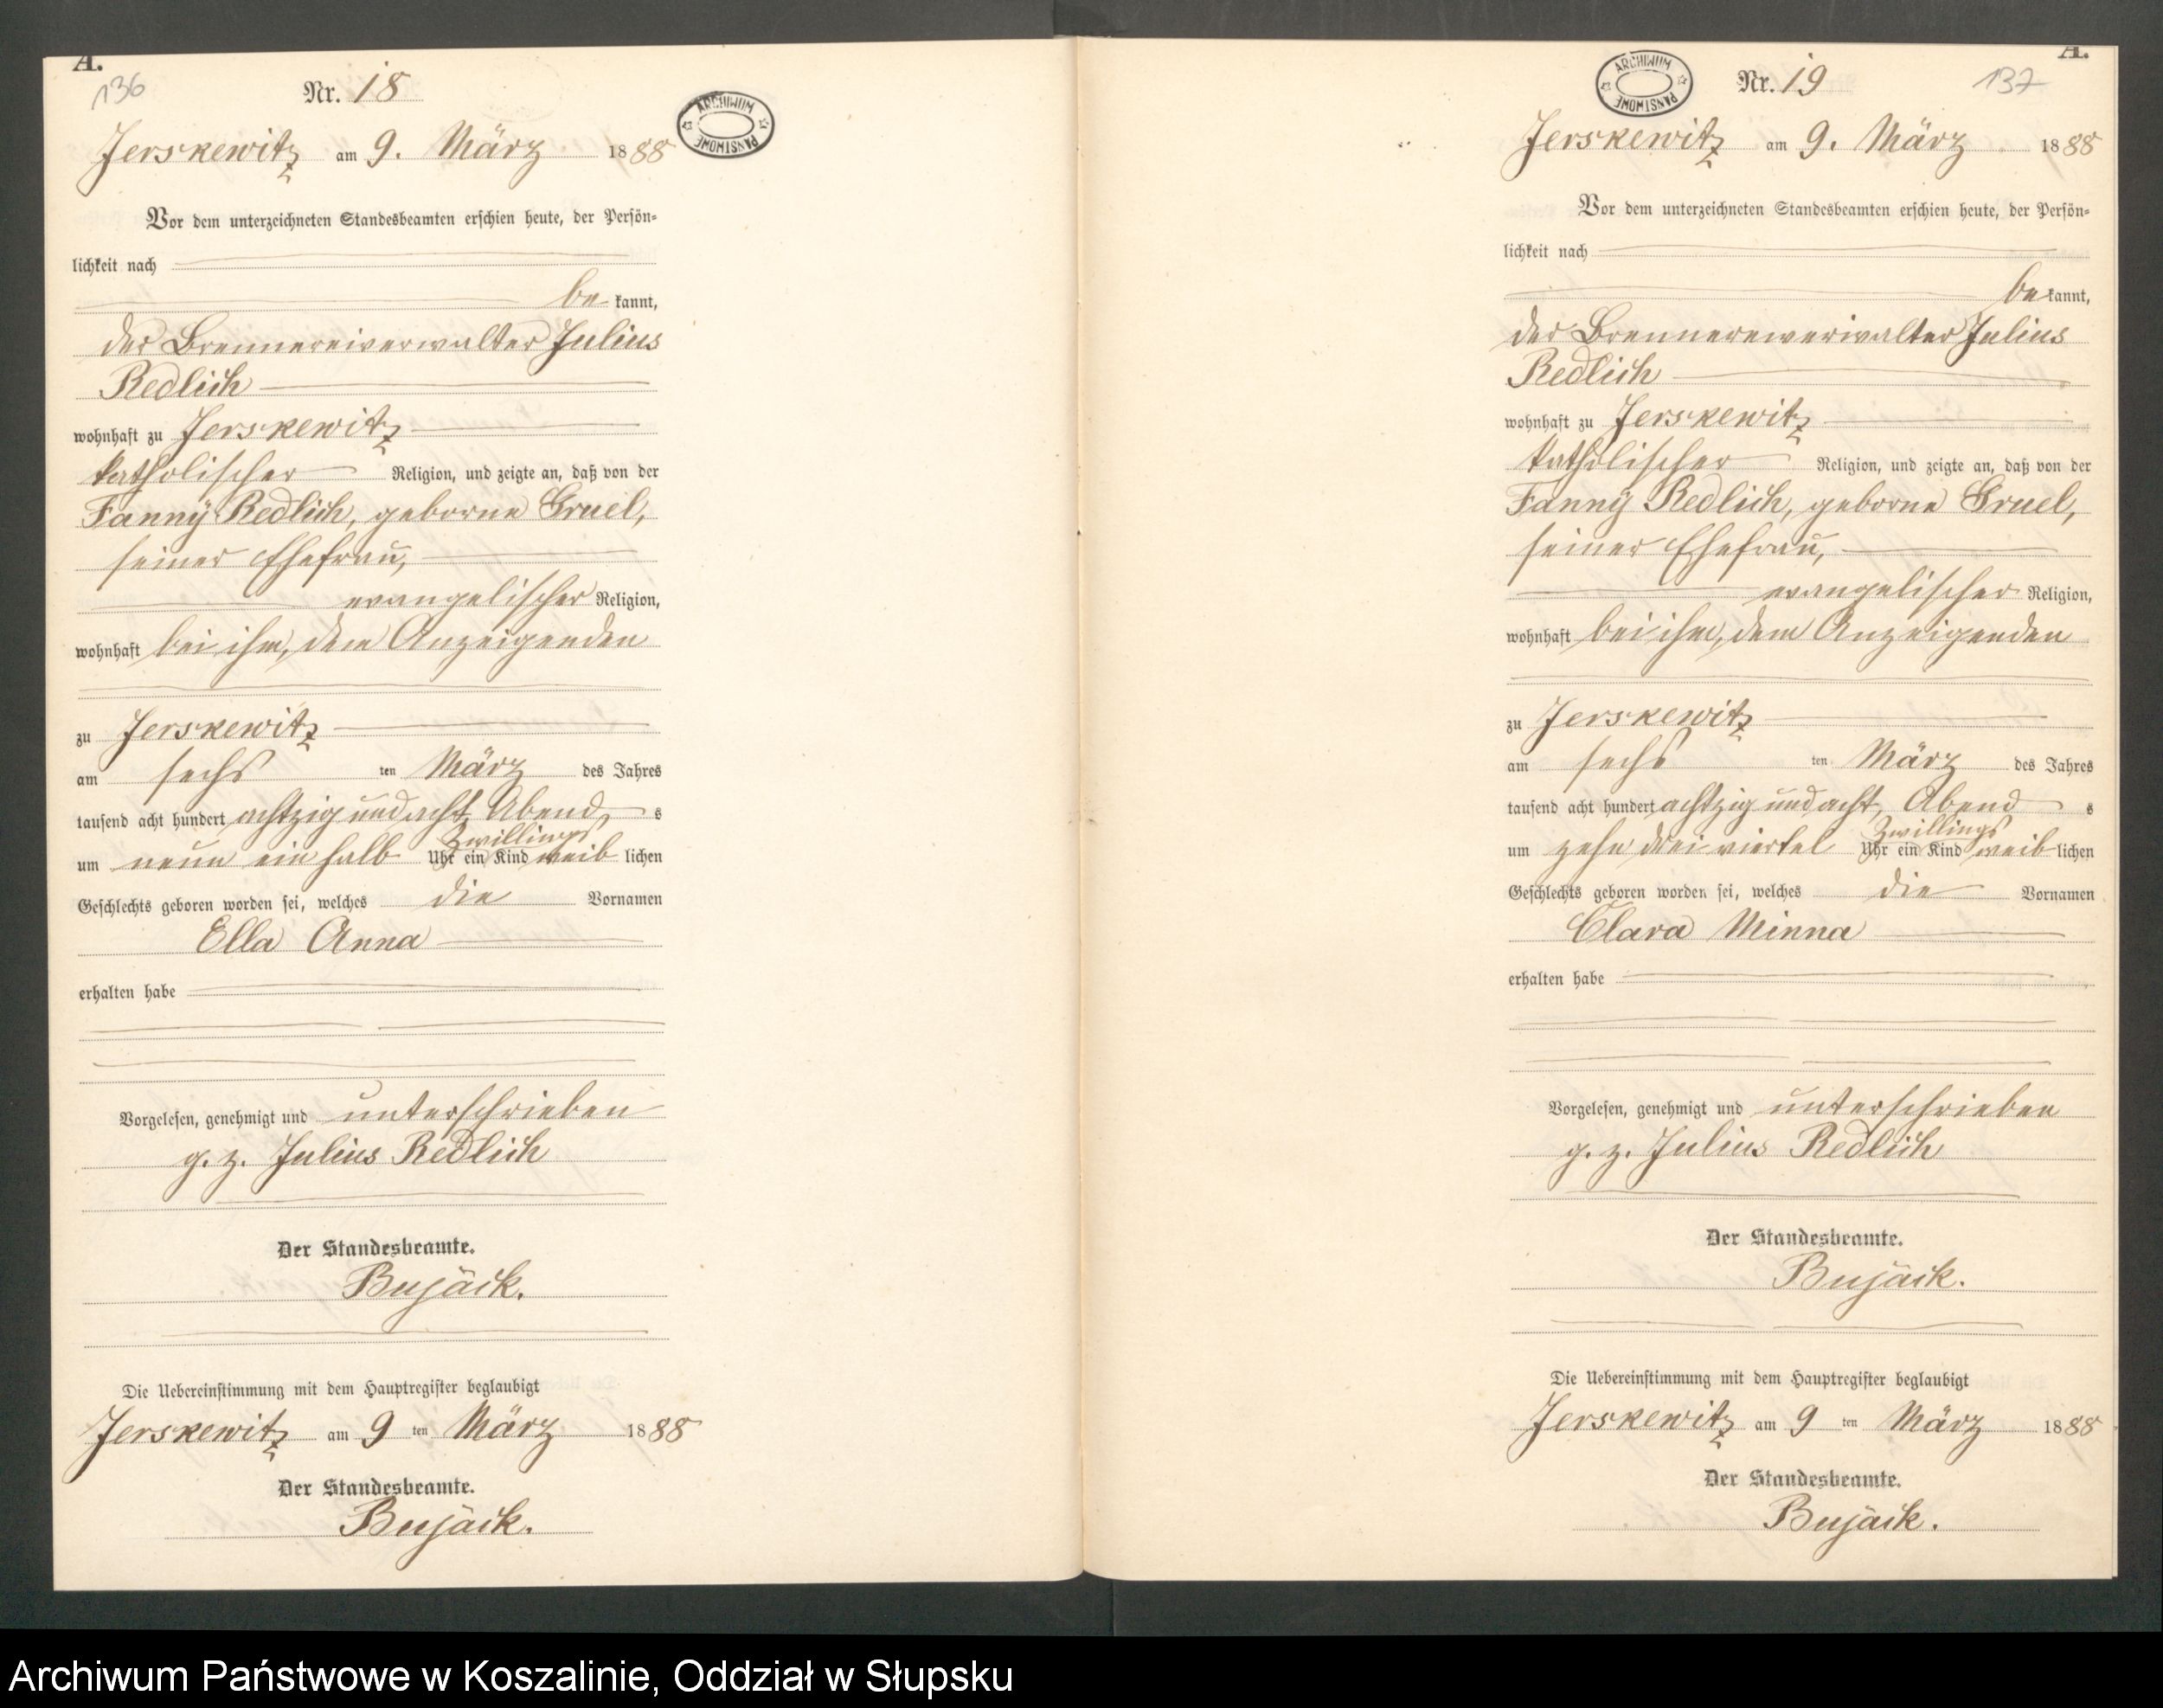 A.
136
Nr. 18
ARCHIWUM PAŃSTWOWE
Jerskewitz am 9. März 1888
Vor dem unterzeichneten Standesbeamten erschien heute, der Persön-
lichkeit nach
be kannt,
der Brennereiverwalter Julius
Redlich
wohnhaft zu Jerskewitz
katholischer Religion, und zeigte an, daß von der
Fanny Redlich, geborne Gruel,
seiner Ehefrau,
evangelischer Religion,
wohnhaft bei ihm, dem Anzeigenden
zu Jerskewitz
am sechs ten März des Jahres
tausend acht hundert achtzig und acht, Abend s
Zwillings
um neun ein halb Uhr ein Kind weib lichen
Geschlechts geboren worden sei, welches die Vornamen
Ella Anna
erhalten habe
Vorgelesen, genehmigt und unterschrieben
g. z. Julius Redlich
Der Standesbeamte.
Bujack.
Die Uebereinstimmung mit dem Hauptregister beglaubigt
Jerskewitz am 9 ten März 1888
Der Standesbeamte.
Bujack.
A.
137
ARCHIWUM PAŃSTWOWE
Nr. 19
Jerskewitz am 9. März 1888
Vor dem unterzeichneten Standesbeamten erschien heute, der Persön-
lichkeit nach
be kannt,
der Brennereiverwalter Julius
Redlich
wohnhaft zu Jerskewitz
katholischer Religion, und zeigte an, daß von der
Fanny Redlich, geborne Gruel,
seiner Ehefrau,
evangelischer Religion,
wohnhaft bei ihm, dem Anzeigenden
zu Jerskewitz
am sechs ten März des Jahres
tausend acht hundert achtzig und acht, Abend s
Zwillings
um zehn drei viertel Uhr ein Kind weib lichen
Geschlechts geboren worden sei, welches die Vornamen
Clara Minna
erhalten habe
Vorgelesen, genehmigt und unterschrieben
g. z. Julius Redlich
Der Standesbeamte.
Bujack.
Die Uebereinstimmung mit dem Hauptregister beglaubigt
Jerskewitz am 9 ten März 1888
Der Standesbeamte.
Bujack.
Archiwum Państwowe w Koszalinie, Oddział w Słupsku